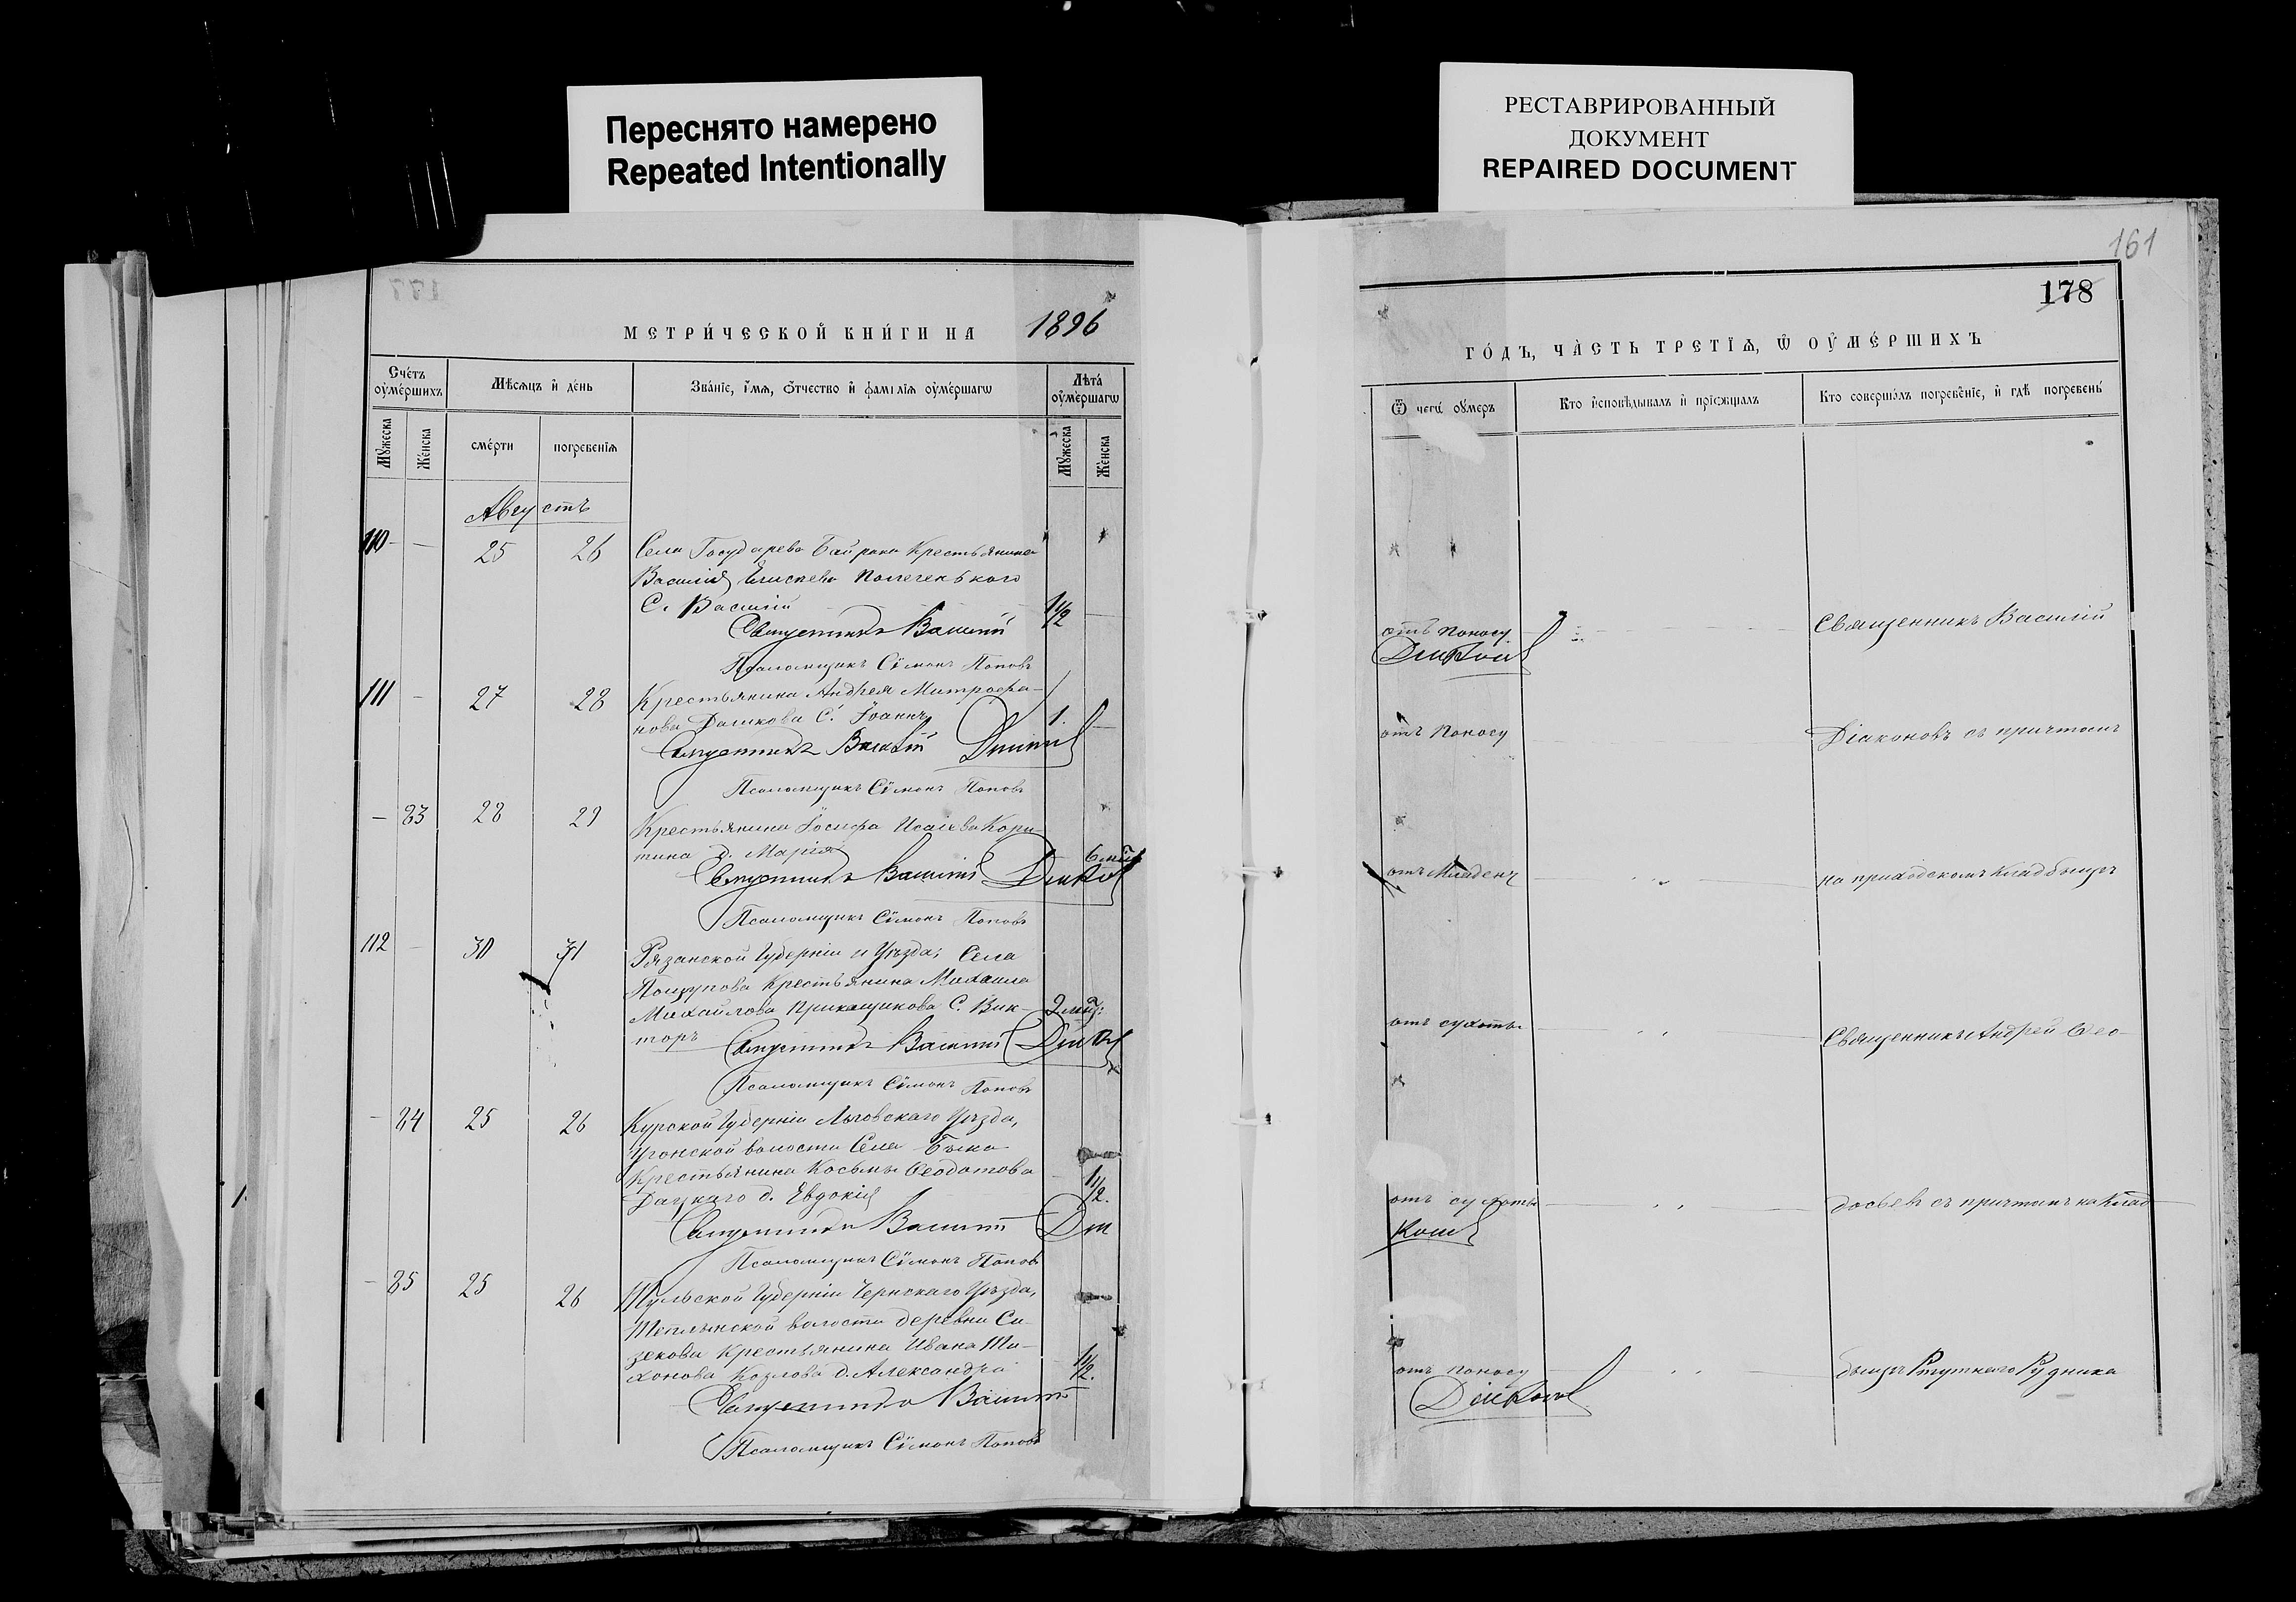 Переснято намерено
Repeated Intentionally
РЕСТАВРИРОВАННЫЙ
ДОКУМЕНТ
REPAIRED DOCUMENT
МЕТРИ́ЧЕСКОЙ КНИ́ГИ НА 1896
Сче́тъ оу҆ме́ршихъ
Мѣ́сѧцъ и҆ де́нь
Зва́нїе, и҆́мѧ, ѻ҆́тчество и҆ фамі́лїѧ оу҆ме́ршагѡ
Лѣта̀ оу҆ме́ршагѡ
Мꙋ́жеска
Же́нска
сме́рти
погребе́нїѧ
Мꙋ́жеска
Же́нска
Августъ
110 — 25 26 Села Государева Байрака Крестьянина
Василія Елисеева
С. Василій 1 1/2 —
Священникъ Василій
Псаломщикъ Сімонъ Поповъ
111 — 27 28 Крестьянина Андрея Митрофа-
нова Дашкова С. Іоаннъ 1. —
Священникъ Василій
Псаломщикъ Сімонъ Поповъ
— 83 28 29 Крестьянина Іосифа Исаіева Кори-
тина д. Марія
Священникъ Василій
Псаломщикъ Сімонъ Поповъ
112 — 30 31 Рязанской Губерніи и Уѣзда, Села
Пощупова Крестьянина Михаила
Михайлова Прикащикова С. Вик-
торъ
Священникъ Василій
Псаломщикъ Сімонъ Поповъ
— 84 25 26 Курской Губерніи Льговскаго Уѣзда,
Угонской волости Села Быка
Крестьянина Косьмы Ѳеодотова
Дацкаго д. Евдокія 1 1/2.
Священникъ Василій
Псаломщикъ Сімонъ Поповъ
— 85 25 26 Тульской Губерніи Чернскаго Уѣзда,
волости деревни Си-
зекова Крестьянина Ивана Ти-
хонова Козлова д. Александра 1 1/2.
Священникъ Василій
Псаломщикъ Сімонъ Поповъ
161
178
ГО́ДЪ, ЧА́СТЬ ТРЕТЇѦ, Ѡ҆ ОУ҆МЕ́РШИХЪ
Ѿ чегѡ̀ оу҆́меръ
Кто̀ и҆сповѣ́дывалъ и҆ прїѡбща́лъ
Кто̀ соверша́лъ погребе́нїе, и҆ гдѣ̀ погребены̀
отъ поносу Священникъ Василій
отъ поносу Діаконовъ съ причтомъ
отъ Младенч на приходскомъ кладбищѣ
отъ сухоты Священникъ Андрей Ѳео-
отъ сухоты досьевъ съ причтомъ на клад-
отъ поносу бищѣ Ртутнаго Рудника